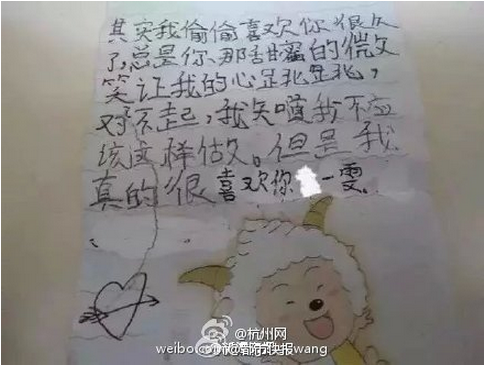 其实我偷偷喜欢你很久
了,总是你那甜蜜的微
笑让我的心
对不起,我知道我不应
该这样做。但是我
真的很喜欢你 一雯。
@杭州网
@都市快报